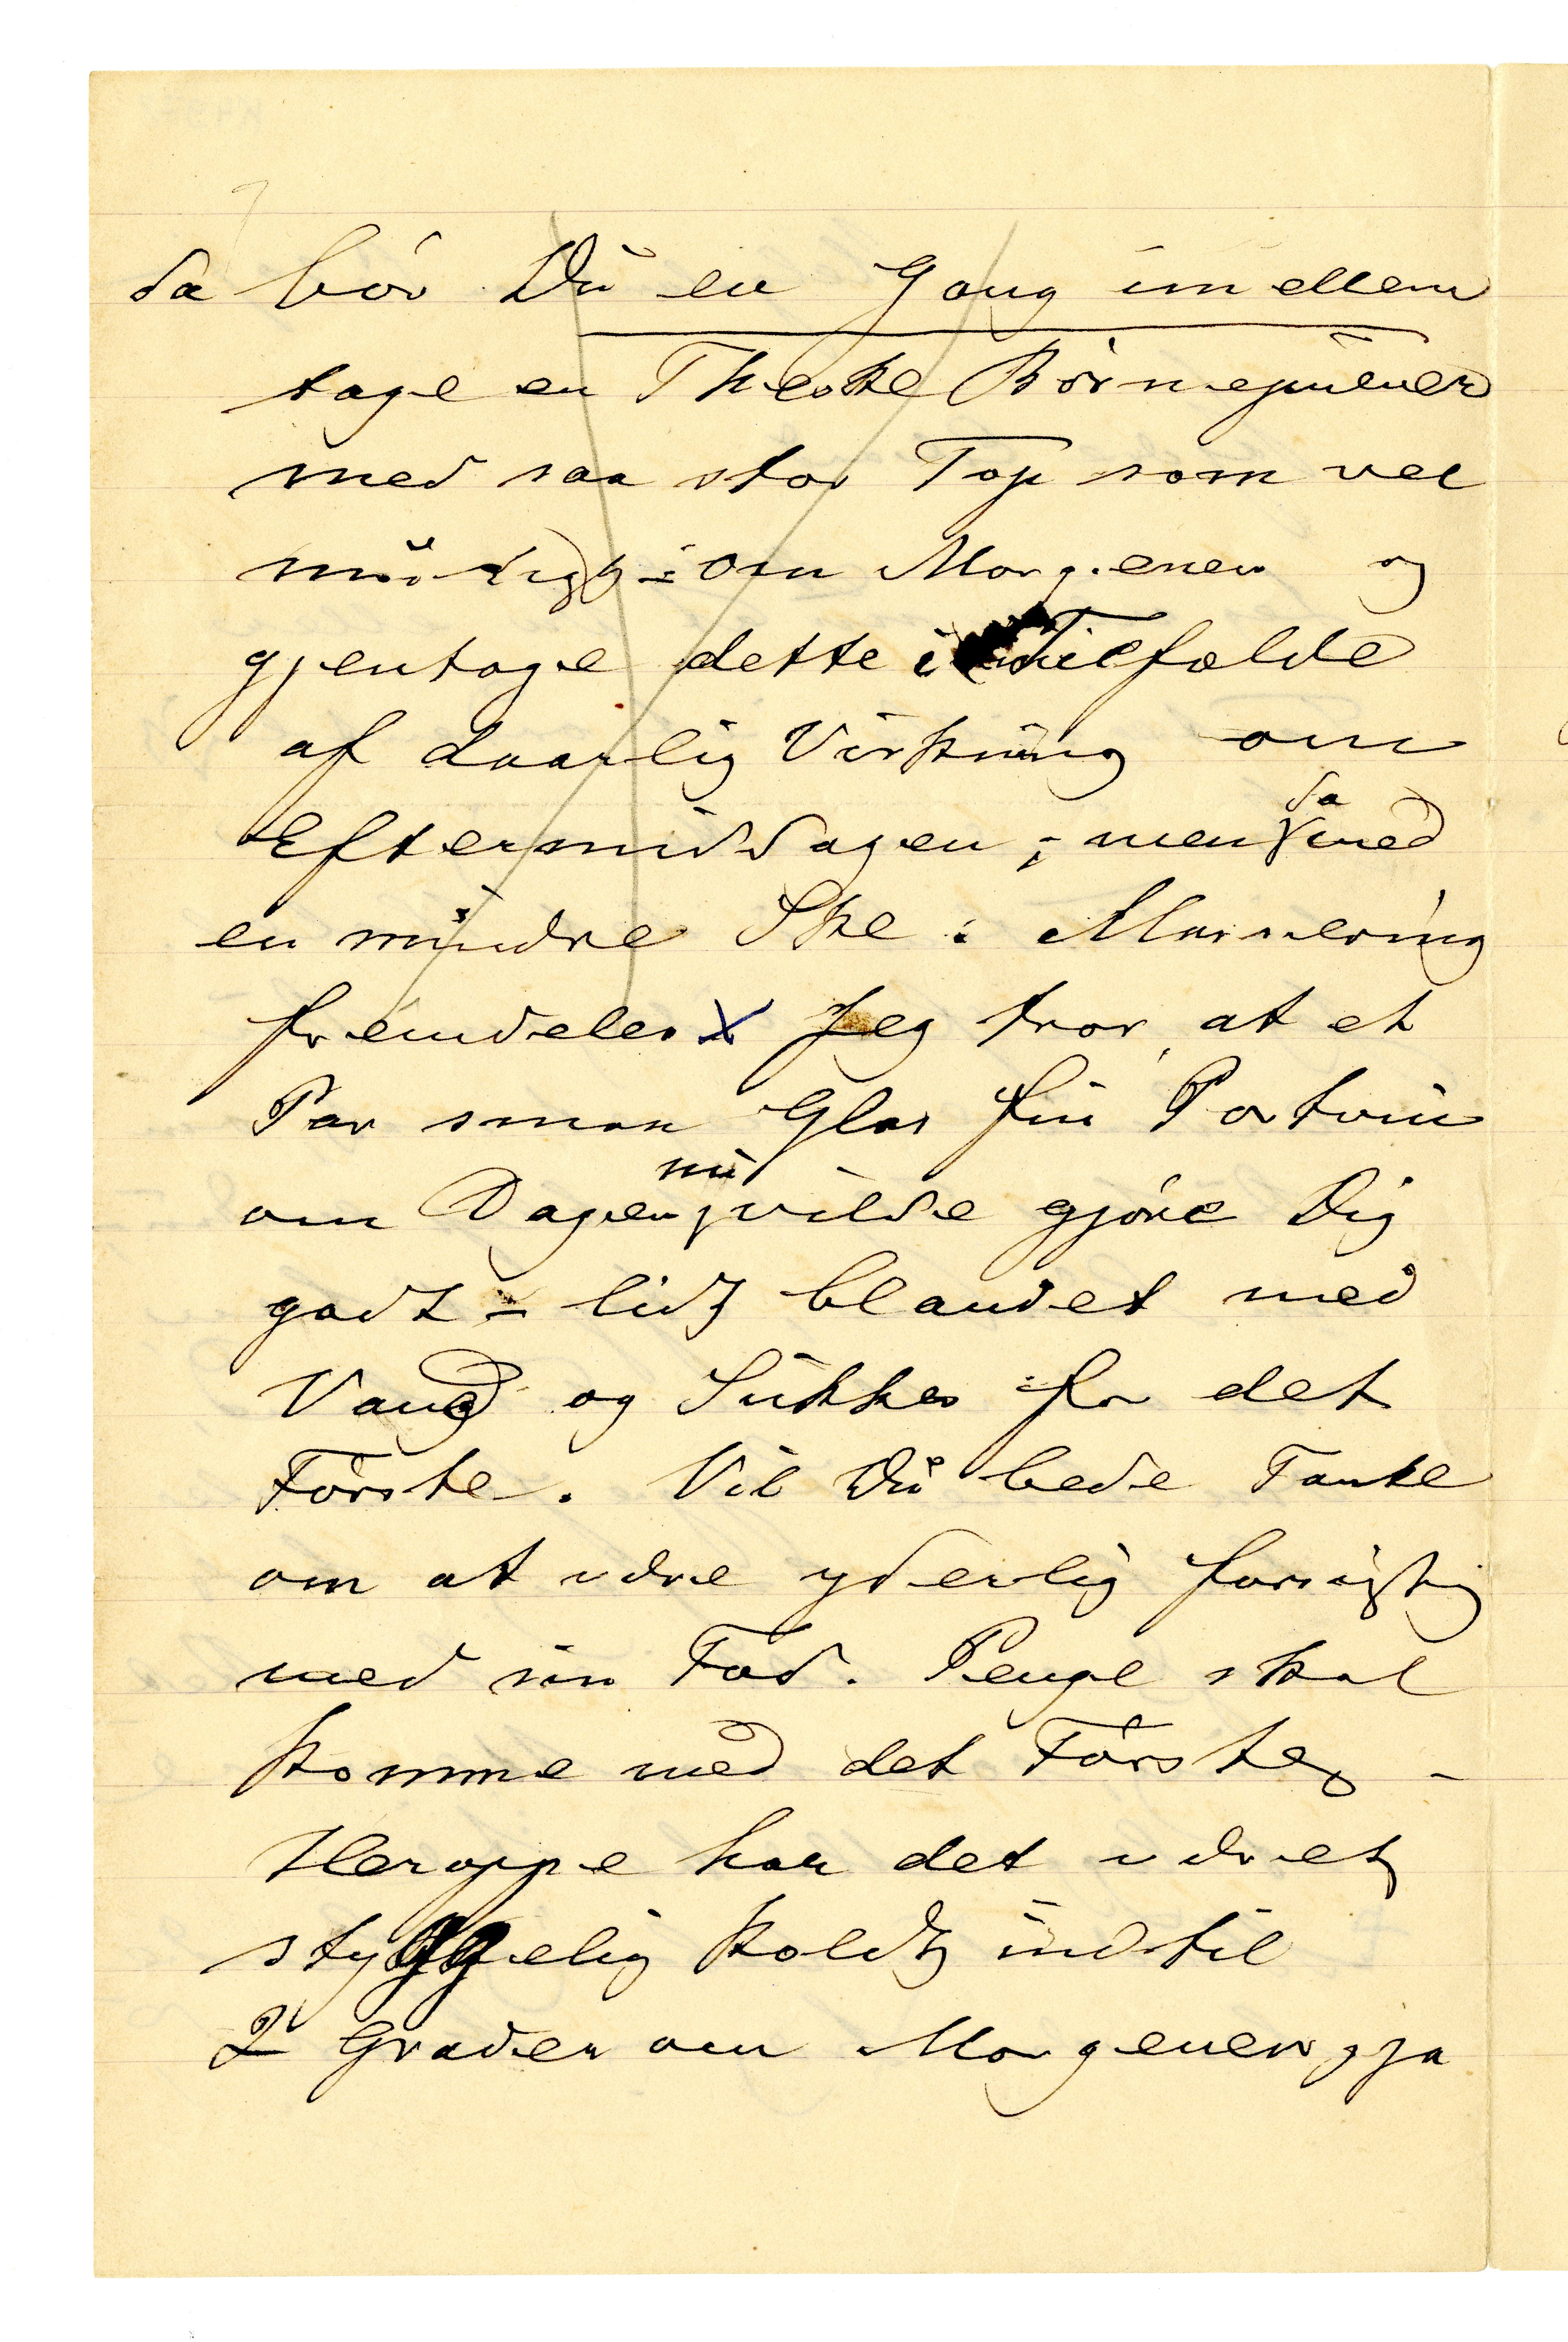 da bör Du en Gang imellem
tage en Theske Börnepulver
med saa stor Top som vel
muligt: om Morgenen og
gjentage dette i Tilfælde
af daarlig Virkning om
Eftermiddagen; men da med
en mindre Ske: Massering
fremdeles X Jeg tror, at et
Par smaa Glas fin Portvin
om Dagen nu vilde gjöre Dig
godt = lidt blandet med
Vand og Sukker for det
Förste. Vil Du bede Tante
om at være yderlig forsigtig
med sin Fod. Penge skal
komme med det Förste. -
Heroppe har det været
styggelig koldt indtil
2 Grader om Morgenen, ja